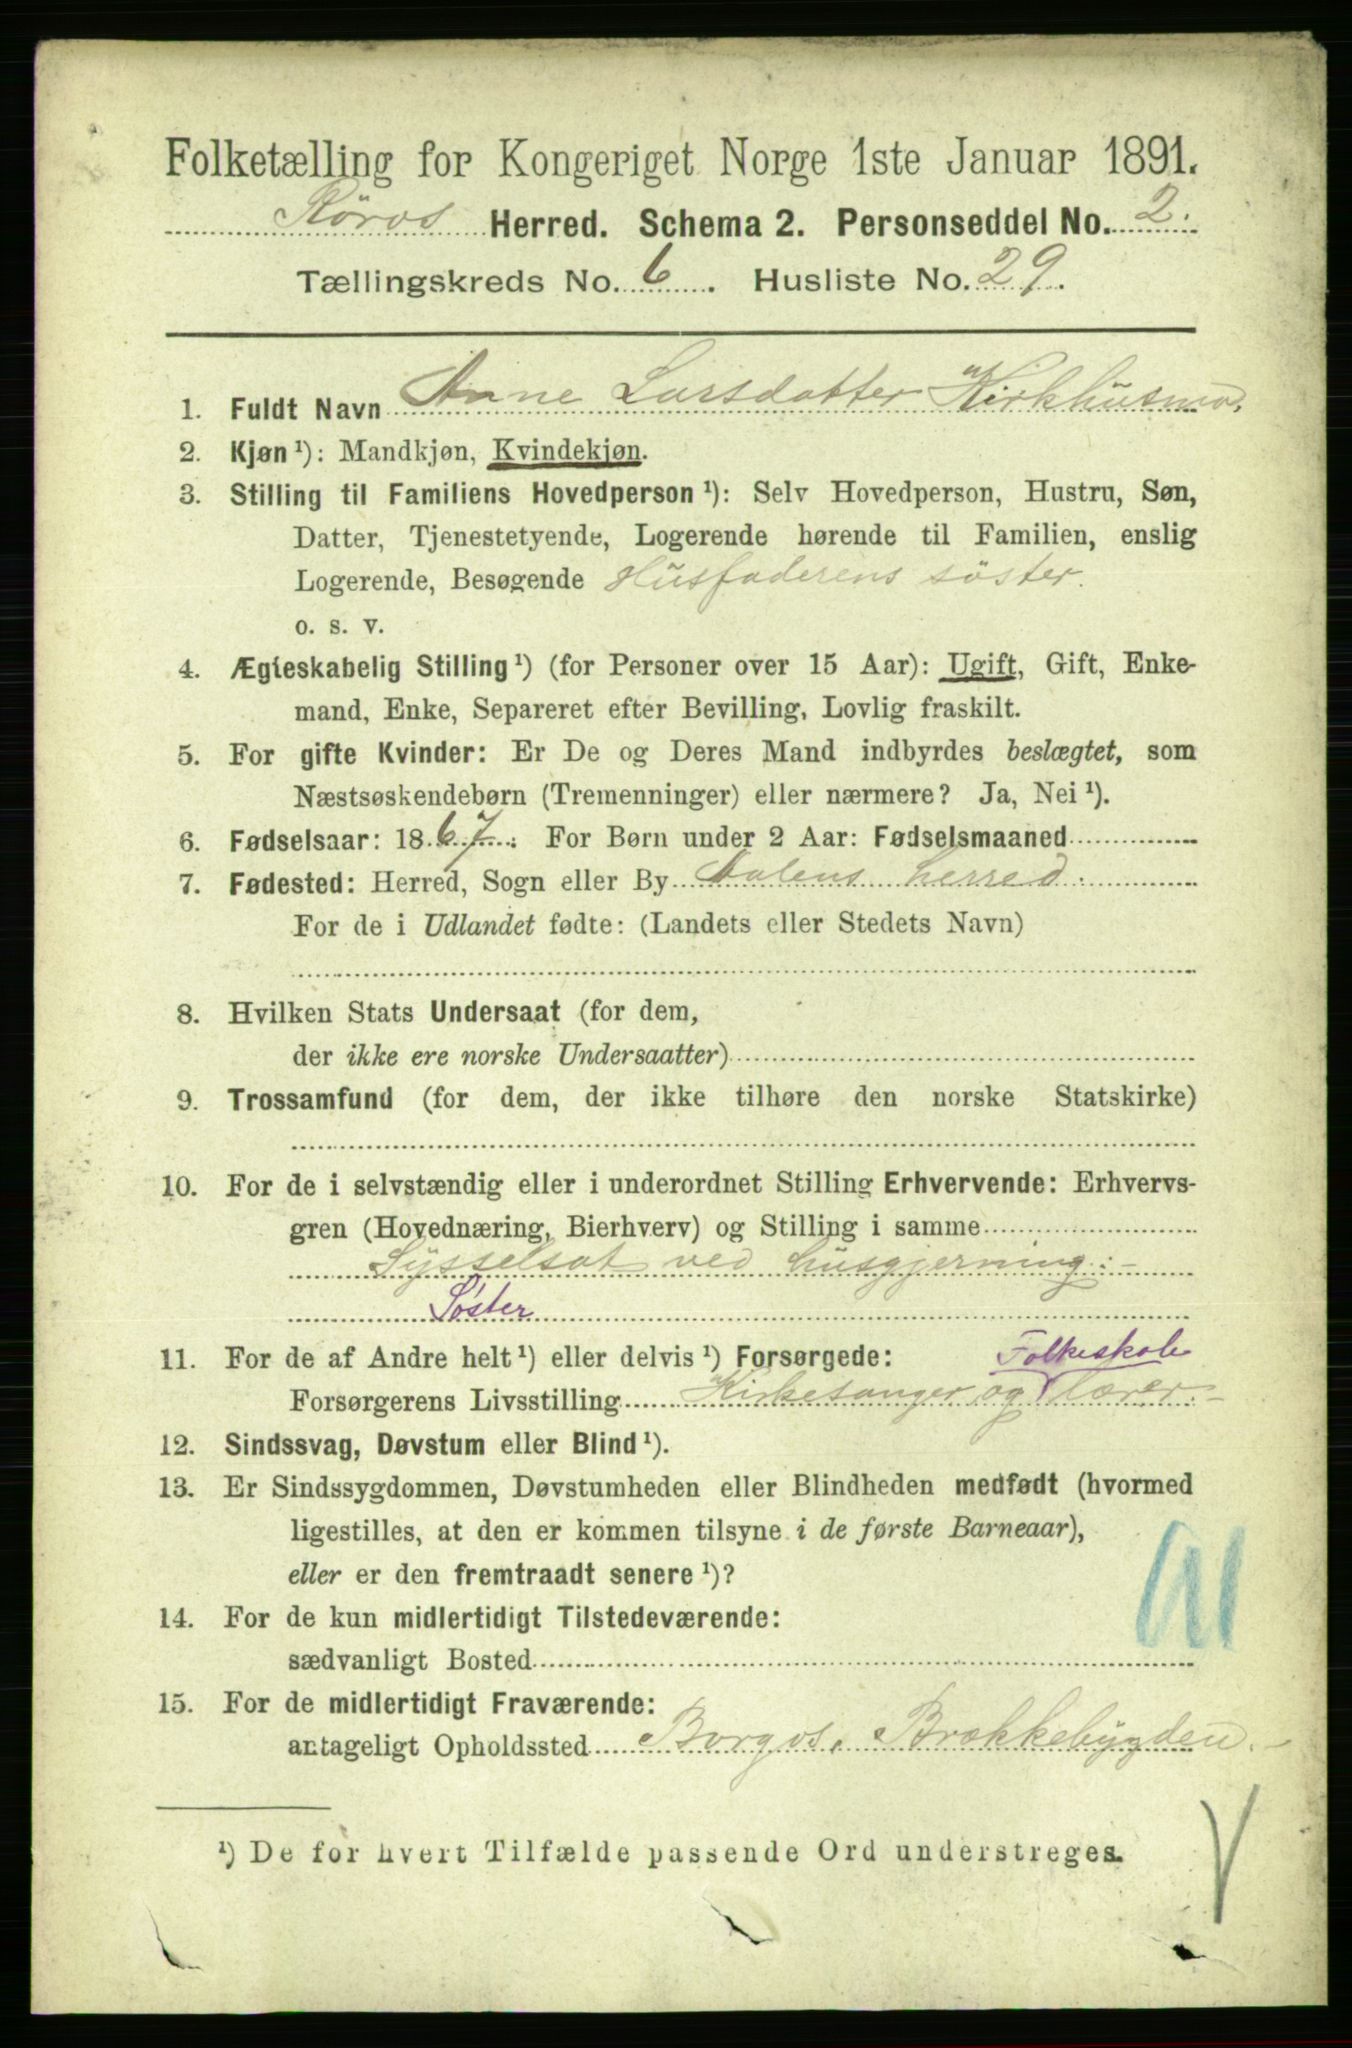 Folketælling for Kongeriget Norge 1ste Januar 1891.
Röros Herred. Schema 2. Personseddel No. 2.
Tællingskreds No. 6. Husliste No. 29.
1. Fuldt Navn Anne Larsdatter Kirkhusmo.
2. Kjøn ¹): Mandkjøn, Kvindekjøn.
3. Stilling til Familiens Hovedperson ¹): Selv Hovedperson, Hustru, Søn,
Datter, Tjenestetyende, Logerende hørende til Familien, enslig
Logerende, Besøgende Husfaderens söster.
o. s. v.
4. Ægteskabelig Stilling ¹) (for Personer over 15 Aar): Ugift, Gift, Enke-
mand, Enke, Separeret efter Bevilling, Lovlig fraskilt.
5. For gifte Kvinder: Er De og Deres Mand indbyrdes beslægtet, som
Næstsøskendebørn (Tremenninger) eller nærmere? Ja, Nei ¹).
6. Fødselsaar: 1867. For Børn under 2 Aar: Fødselsmaaned
7. Fødested: Herred, Sogn eller By Aalens herred.
For de i Udlandet fødte: (Landets eller Stedets Navn)
8. Hvilken Stats Undersaat (for dem,
der ikke ere norske Undersaatter)
9. Trossamfund (for dem, der ikke tilhøre den norske Statskirke)
10. For de i selvstændig eller i underordnet Stilling Erhvervende: Erhvervs-
gren (Hovednæring, Bierhverv) og Stilling i samme
Sysselsat ved husgjerning.-
Söster
11. For de af Andre helt ¹) eller delvis ¹) Forsørgede: Folkeskole
Forsørgerens Livsstilling Kirkesanger og lærer.-
12. Sindssvag, Døvstum eller Blind ¹).
13. Er Sindssygdommen, Døvstumheden eller Blindheden medfødt (hvormed
ligestilles, at den er kommen tilsyne i de første Barneaar),
eller er den fremtraadt senere ¹)?
14. For de kun midlertidigt Tilstedeværende:
sædvanligt Bosted
15. For de midlertidigt Fraværende:
antageligt Opholdssted Borgos, Brækkebygden.-
¹) De for hvert Tilfælde passende Ord understreges.